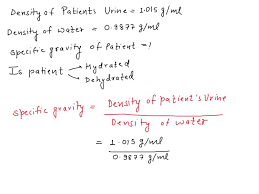 Density of Patients Urine = 1.015 g/ml
Density of water = 0.9877 g/ml
Specific gravity of Patient = ?
Is patient Hydrated
Dehydrated
Specific gravity = Density of patient's Urine
Density of water
= 1.015 g/ml
0.9877 g/ml